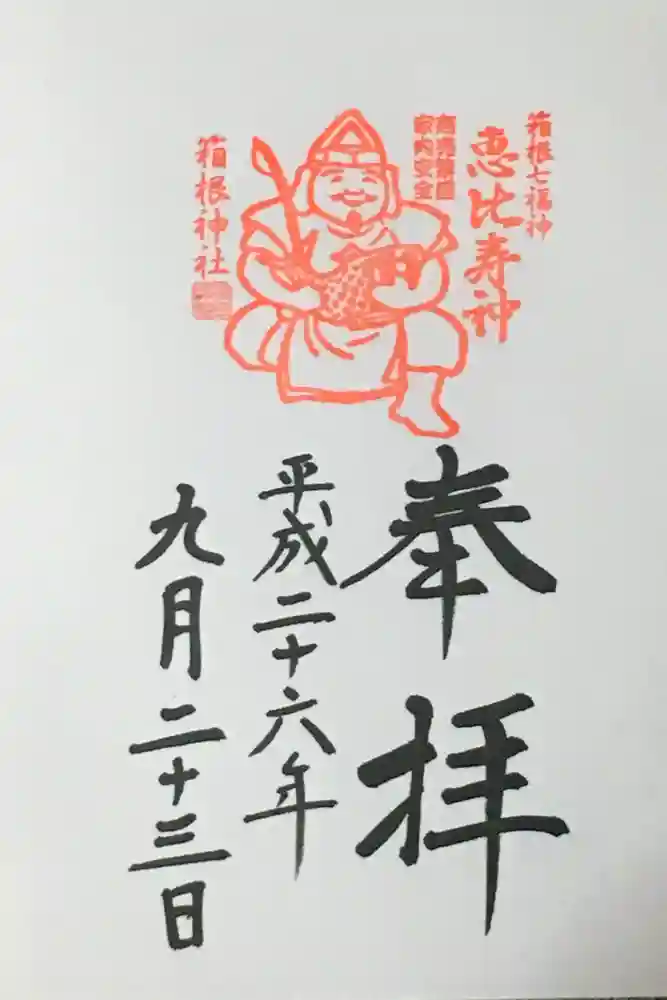 箱根七福神
恵比寿神
商売繁盛
家内安全
箱根神社
奉拝
平成二十六年
九月二十三日